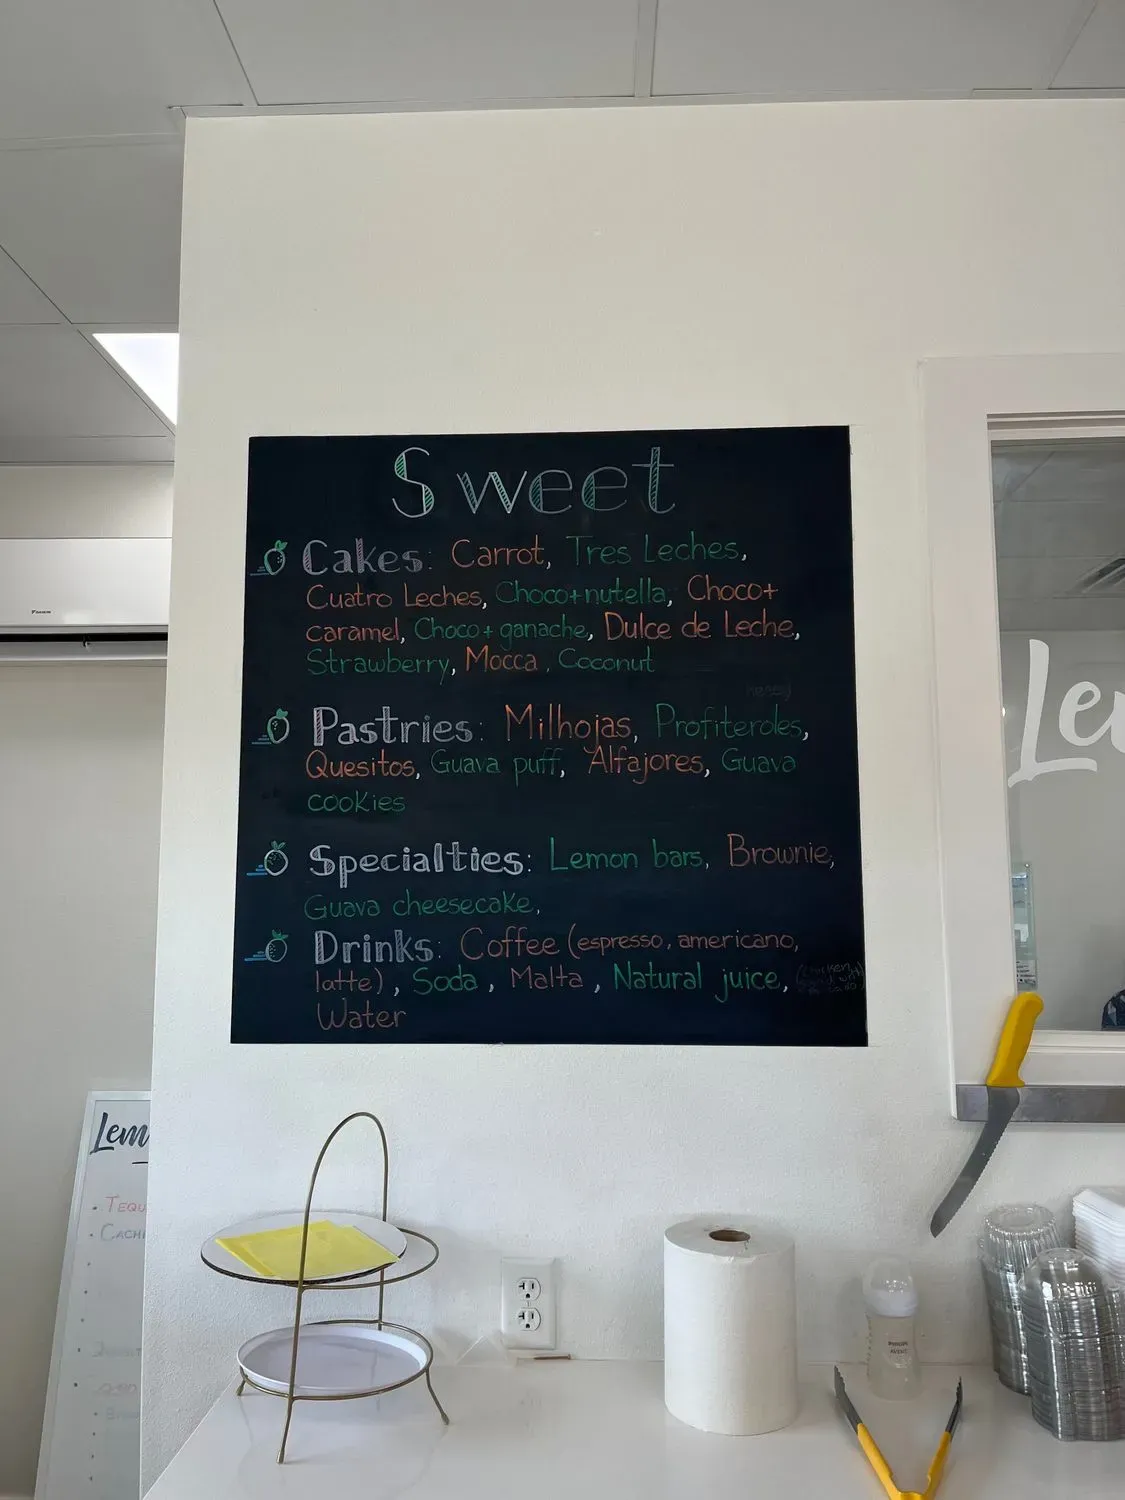 Sweet
Cakes: Carrot, Tres Leches,
Cuatro Leches, Choco+nutella, Choco+
caramel, Choco+ganache, Dulce de Leche,
Strawberry, Mocca, Coconut
Pastries: Milhojas, Profiteroles,
Quesitos, Guava puff, Alfajores, Guava
cookies
Specialties: Lemon bars, Brownie,
Guava cheesecake,
Drinks: Coffee (espresso, americano,
latte), Soda, Malta, Natural juice,
Water
DAIKIN
Le
Lem
• TEQU
• CACH
PHILIPS
AVENT